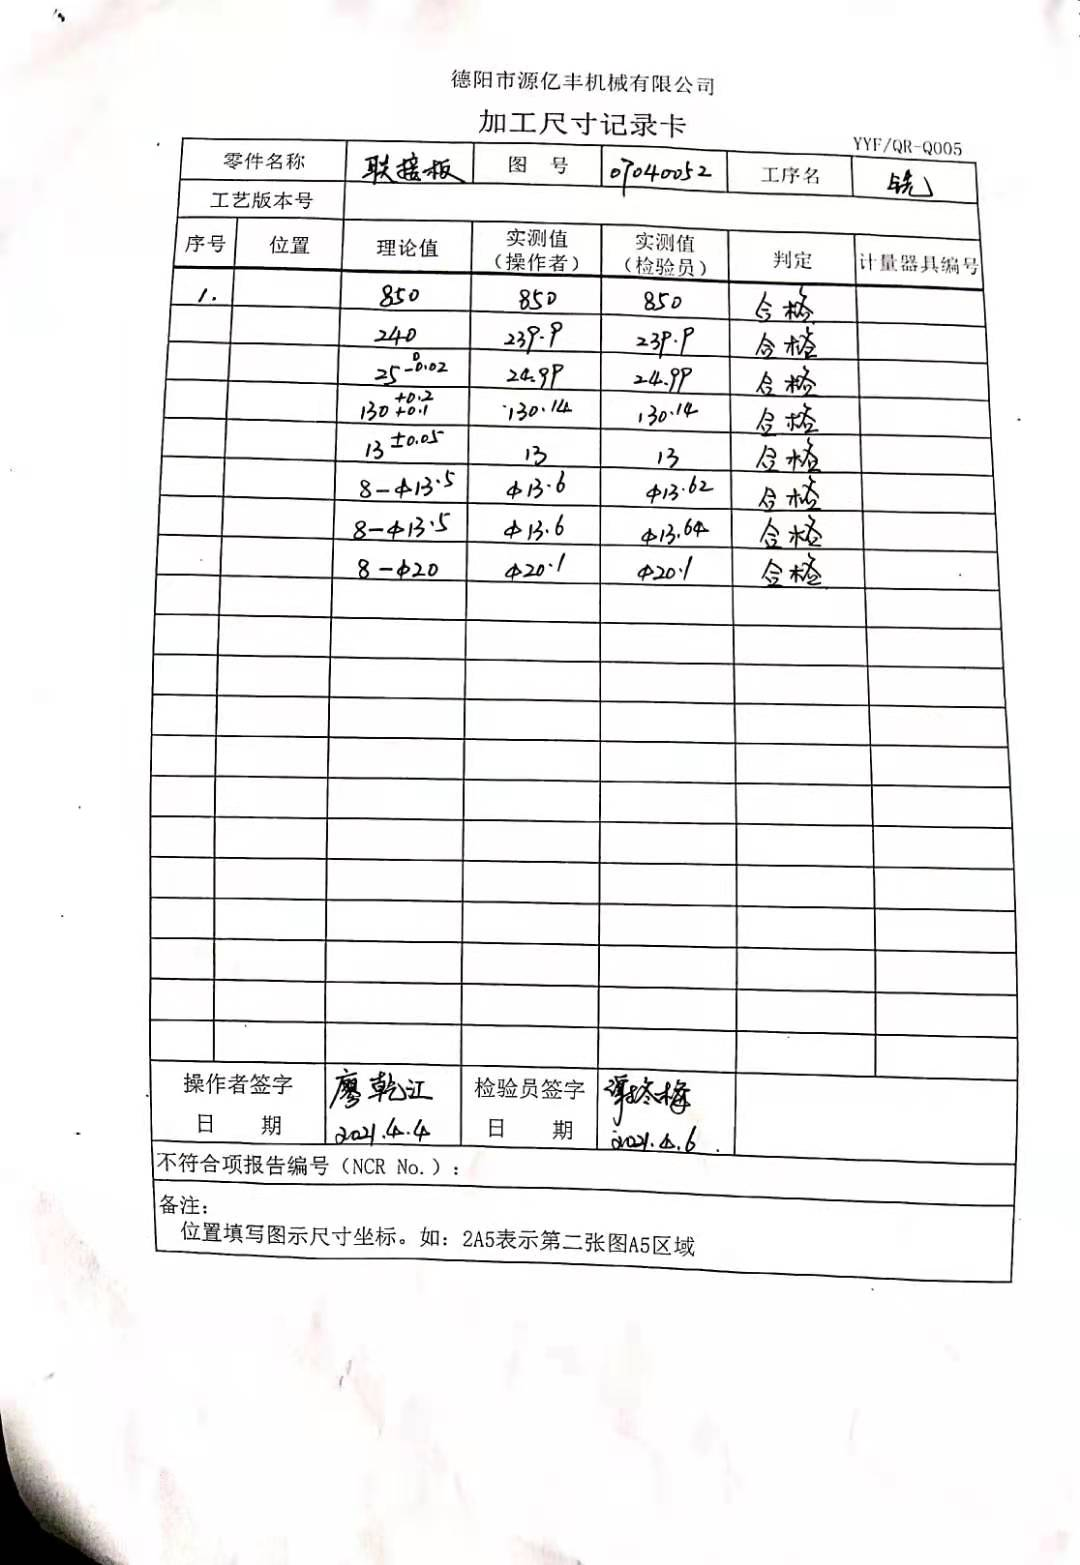 德阳市源亿丰机械有限公司
加工尺寸记录卡
YYF/QR-Q005
零件名称 联接板 图 号 07040052 工序名 铣
工艺版本号
序号 位置 理论值 实测值（操作者） 实测值（检验员） 判定 计量器具编号
1. 850 850 850 合格
240 239.9 239.9 合格
25 0 -0.02 24.99 24.99 合格
130 +0.2 +0.1 130.14 130.14 合格
13 ±0.05 13 13 合格
8-Φ13.5 Φ13.6 Φ13.62 合格
8-Φ13.5 Φ13.6 Φ13.64 合格
8-Φ20 Φ20.1 Φ20.1 合格
操作者签字 廖乾江 检验员签字 冬梅
日 期 2021.4.4 日 期 2021.4.6.
不符合项报告编号（NCR No.）：
备注：
位置填写图示尺寸坐标。如：2A5表示第二张图A5区域